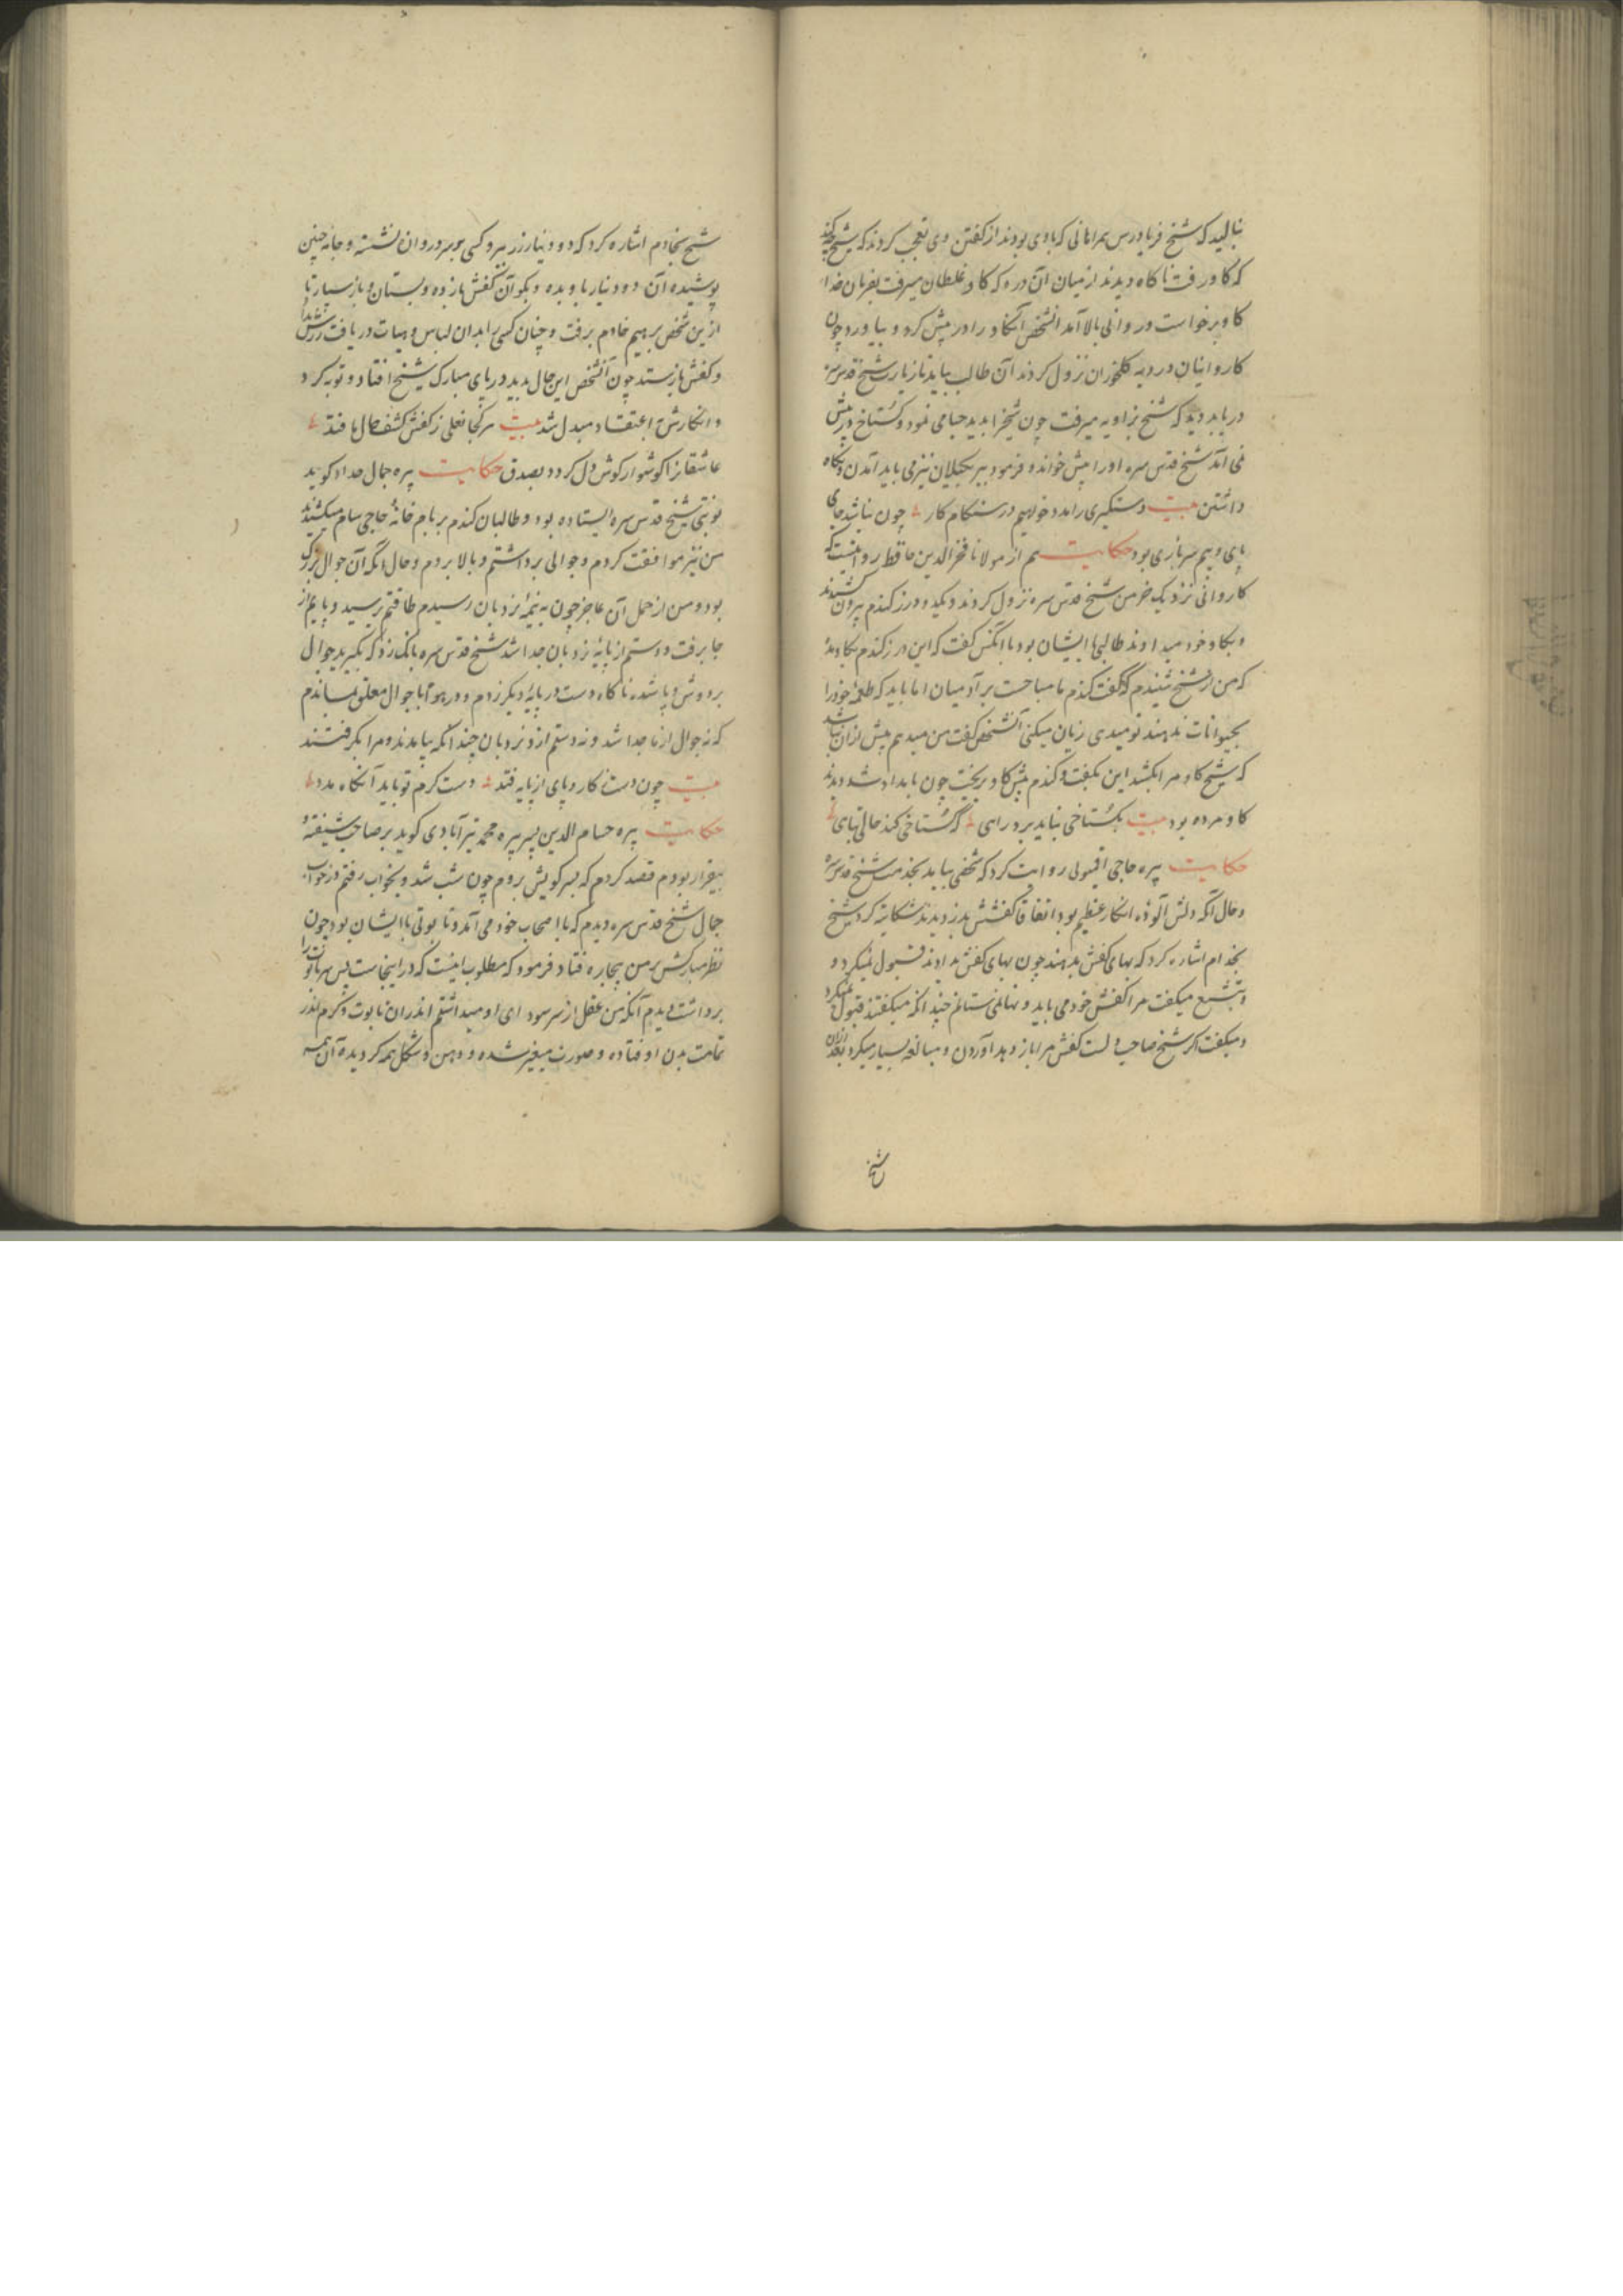 بنالید که شیخ فریادرس همراهانی که با وی بودند از گفتن وی تعجب کردند که شیخ چه کند
که گاو رفت ناگاه دیدند از میان آن دره که گاو غلطان میرفت بفرمان خدا
گاو برخواست و روانی بالا آمد آنشخص آنگاو را در پیش کرد و بیاورد چون
کاروانیان در دیه کلخوران نزول کردند آن طالب بیاید تا زیارت شیخ قدس سره
دریابد دید که شیخ بزاویه میرفت چون شیخ را بدید حیا می نمود و گستاخ در پیش
نمی آمد شیخ قدس سره او را پیش خواند و فرمود پیر بگیلان نیز می باید آمدن و نگاه
داشتن بیت دستگیری را مدد خواهیم در هنگام کار چون نباشد جای
پای و بیم سربازی بود حکایت هم از مولانا فخر الدین حافظ روایتست که
کاروانی نزدیک خرمن شیخ قدس سره نزول کردند و یکدو درز گندم بیرون کشیدند
و بگاو خود میدادند طالبی با ایشان بود با آنکس گفت که این درز گندم بگاو مده
که من از شیخ شنیدم که گفت گندم ما مباحست بر آدمیان اما باید که طعمهٔ خود را
بحیوانات ندهند تو میدی زیان میکنی آنشخص گفت من میدهم بیش ازان نباشد
که شیخ گاو مرا بکشد این بگفت و گندم پیش گاو بریخت چون بامداد شد دیدند
گاو مرده بود بیت بگستاخی نباید برد رای که گستاخی کند خالی بهای
حکایت پیره حاجی اقیمونی روایت کرد که شخصی بیامد بخدمت شیخ قدس سره
و حال آنکه دلش آلودهٔ انکار عظیم بود اتفاقا کفشش بدزدیدند شکایت کرد شیخ
بخدام اشاره کرد که بهای کفش بدهند چون بهای کفش بدادند قبول نمیکرد و
و تشنیع میگفت مرا کفش خود می باید و بها نمی ستانم چندانکه میگفتند قبول نمیکرد
و میگفت اگر شیخ صاحب ولست کفش مرا باز دهد آوردن و مبالغه بسیار میکرد بعد ازان
شیخ
شیخ بخادم اشاره کرد که دو دینار زر ببر و کسی بر سر دروان نشسته و جامه چنین
پوشیده آن دو دینار باو بده و بگو آن کفش باز ده و بستان و باز سپار تا
ازین شخص برهیم خادم برفت و چنان کسی را بدان لباس و هیات دریافت زرش بداد
و کفش بازستد چون آنشخص این حال بدید در پای مبارک شیخ افتاد و توبه کرد
و انکارش باعتقاد مبدل شد بیت هر کجا نعلی ز کفش کشف حال ما فتد
عاشقانرا گوشوار گوش دل گردد بصدق حکایت پیره جمال حداد گوید
نوبتی شیخ قدس سره ایستاده بود و طالبان گندم بر بام خانهٔ حاجی سام میکشیدند
من نیز موافقت کردم و جوالی برداشتم و بالا بردم و حال آنکه آن جوال بزرگ
بود و من از حمل آن عاجز چون به نیمهٔ نردبان رسیدم طاقتم برسید و پایم از
جا برفت و دستم از پایهٔ نردبان جدا شد شیخ قدس سره بانک زد که بگیرید جوال
بر دوش و پا شده ناگاه دست در پایهٔ دیگر زدم و در هوا با جوال معلق بماندم
که نه جوال از ما جدا شد و نه دستم از نردبان چندانکه بیامدند و مرا بگرفتند
بیت چون دست ز کار و پای از پایه فتد دست کرم تو باید آنگاه مدد
حکایت پیره حسام الدین پسر پیره محمد تبرآبادی گوید بر صاحب شیفته و
بیقرار بودم قصد کردم که بسر کویش بروم چون شب شد و بخواب رفتم در خواب
جمال شیخ قدس سره دیدم که با اصحاب خود می آمد و تابوتی با ایشان بود چون
نظر مبارکش بر من بیچاره فتاد فرمود که مطلوب اینست که در اینجاست پس سر تابوت را
برداشت دیدم آنکه من عقل از سر سودای او میداشتم اندران تابوت و کرم اندر
تمامت بدن او فتاده و صورت متغیر شده و دهن و شکل همه گردیده آن همه